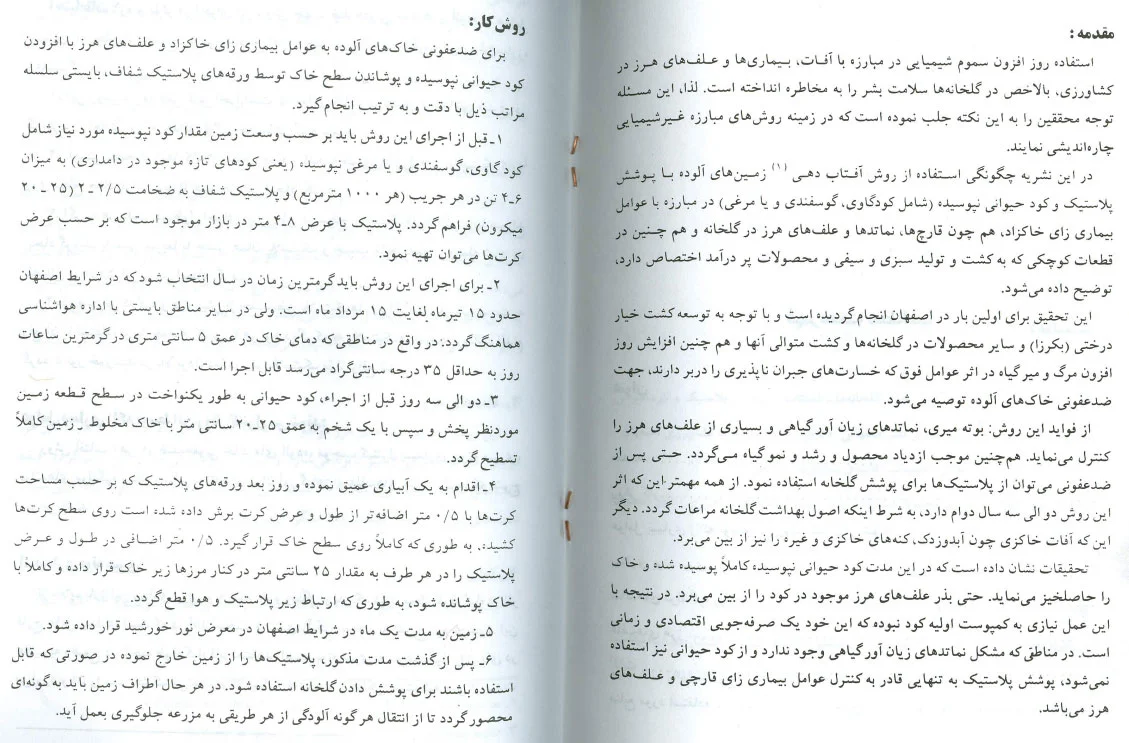 مقدمه :
استفاده روز افزون سموم شیمیایی در مبارزه با آفات، بیماری‌ها و علف‌های هرز در
کشاورزی، بالاخص در گلخانه‌ها سلامت بشر را به مخاطره انداخته است. لذا، این مسئله
توجه محققین را به این نکته جلب نموده است که در زمینه روش‌های مبارزه غیرشیمیایی
چاره‌اندیشی نمایند.
در این نشریه چگونگی استفاده از روش آفتاب دهی (۱) زمین‌های آلوده با پوشش
پلاستیک و کود حیوانی نپوسیده (شامل کودگاوی، گوسفندی و یا مرغی) در مبارزه با عوامل
بیماری زای خاکزاد، هم چون قارچ‌ها، نماتدها و علف‌های هرز در گلخانه و هم چنین در
قطعات کوچکی که به کشت و تولید سبزی و سیفی و محصولات پر درآمد اختصاص دارد،
توضیح داده می‌شود.
این تحقیق برای اولین بار در اصفهان انجام گردیده است و با توجه به توسعه کشت خیار
درختی (بکرزا) و سایر محصولات در گلخانه‌ها و کشت متوالی آنها و هم چنین افزایش روز
افزون مرگ و میر گیاه در اثر عوامل فوق که خسارت‌های جبران ناپذیری را دربر دارند، جهت
ضدعفونی خاک‌های آلوده توصیه می‌شود.
از فواید این روش: بوته میری، نماتدهای زیان آور گیاهی و بسیاری از علف‌های هرز را
کنترل می‌نماید. هم‌چنین موجب ازدیاد محصول و رشد و نمو گیاه می‌گردد. حتی پس از
ضدعفونی می‌توان از پلاستیک‌ها برای پوشش گلخانه استفاده نمود. از همه مهمتر این که اثر
این روش دو الی سه سال دوام دارد، به شرط اینکه اصول بهداشت گلخانه مراعات گردد. دیگر
این که آفات خاکزی چون آبدوزدک، کنه‌های خاکزی و غیره را نیز از بین می‌برد.
تحقیقات نشان داده است که در این مدت کود حیوانی نپوسیده کاملاً پوسیده شده و خاک
را حاصلخیز می‌نماید. حتی بذر علف‌های هرز موجود در کود را از بین می‌برد. در نتیجه با
این عمل نیازی به کمپوست اولیه کود نبوده که این خود یک صرفه‌جویی اقتصادی و زمانی
است. در مناطقی که مشکل نماتدهای زیان آور گیاهی وجود ندارد و از کود حیوانی نیز استفاده
نمی‌شود، پوشش پلاستیک به تنهایی قادر به کنترل عوامل بیماری زای قارچی و علف‌های
هرز می‌باشد.
روش کار:
برای ضدعفونی خاک‌های آلوده به عوامل بیماری زای خاکزاد و علف‌های هرز با افزودن
کود حیوانی نپوسیده و پوشاندن سطح خاک توسط ورقه‌های پلاستیک شفاف، بایستی سلسله
مراتب ذیل با دقت و به ترتیب انجام گیرد.
۱ـ قبل از اجرای این روش باید بر حسب وسعت زمین مقدار کود نپوسیده مورد نیاز شامل
کود گاوی، گوسفندی و یا مرغی نپوسیده (یعنی کودهای تازه موجود در دامداری) به میزان
۶ـ۴ تن در هر جریب (هر ۱۰۰۰ مترمربع) و پلاستیک شفاف به ضخامت ۲/۵ ـ ۲ (۲۵ ـ ۲۰
میکرون) فراهم گردد. پلاستیک با عرض ۸ـ۴ متر در بازار موجود است که بر حسب عرض
کرت‌ها می‌توان تهیه نمود.
۲ـ برای اجرای این روش باید گرمترین زمان در سال انتخاب شود که در شرایط اصفهان
حدود ۱۵ تیرماه لغایت ۱۵ مرداد ماه است. ولی در سایر مناطق بایستی با اداره هواشناسی
هماهنگ گردد: در واقع در مناطقی که دمای خاک در عمق ۵ سانتی متری در گرمترین ساعات
روز به حداقل ۳۵ درجه سانتی‌گراد می‌رسد قابل اجرا است.
۳ـ دو الی سه روز قبل از اجراء، کود حیوانی به طور یکنواخت در سطح قطعه زمین
موردنظر پخش و سپس با یک شخم به عمق ۲۵ـ۲۰ سانتی متر با خاک مخلوط ـ زمین کاملاً
تسطیح گردد.
۴ـ اقدام به یک آبیاری عمیق نموده و روز بعد ورقه‌های پلاستیک که بر حسب مساحت
کرت‌ها با ۰/۵ متر اضافه‌تر از طول و عرض کرت برش داده شده است روی سطح کرت‌ها
کشیده، به طوری که کاملاً روی سطح خاک قرار گیرد. ۰/۵ متر اضافی در طول و عرض
پلاستیک را در هر طرف به مقدار ۲۵ سانتی متر در کنار مرزها زیر خاک قرار داده و کاملاً با
خاک پوشانده شود، به طوری که ارتباط زیر پلاستیک و هوا قطع گردد.
۵ـ زمین به مدت یک ماه در شرایط اصفهان در معرض نور خورشید قرار داده شود.
۶ـ پس از گذشت مدت مذکور، پلاستیک‌ها را از زمین خارج نموده در صورتی که قابل
استفاده باشند برای پوشش دادن گلخانه استفاده شود. در هر حال اطراف زمین باید به گونه‌ای
محصور گردد تا از انتقال هر گونه آلودگی از هر طریقی به مزرعه جلوگیری بعمل آید.